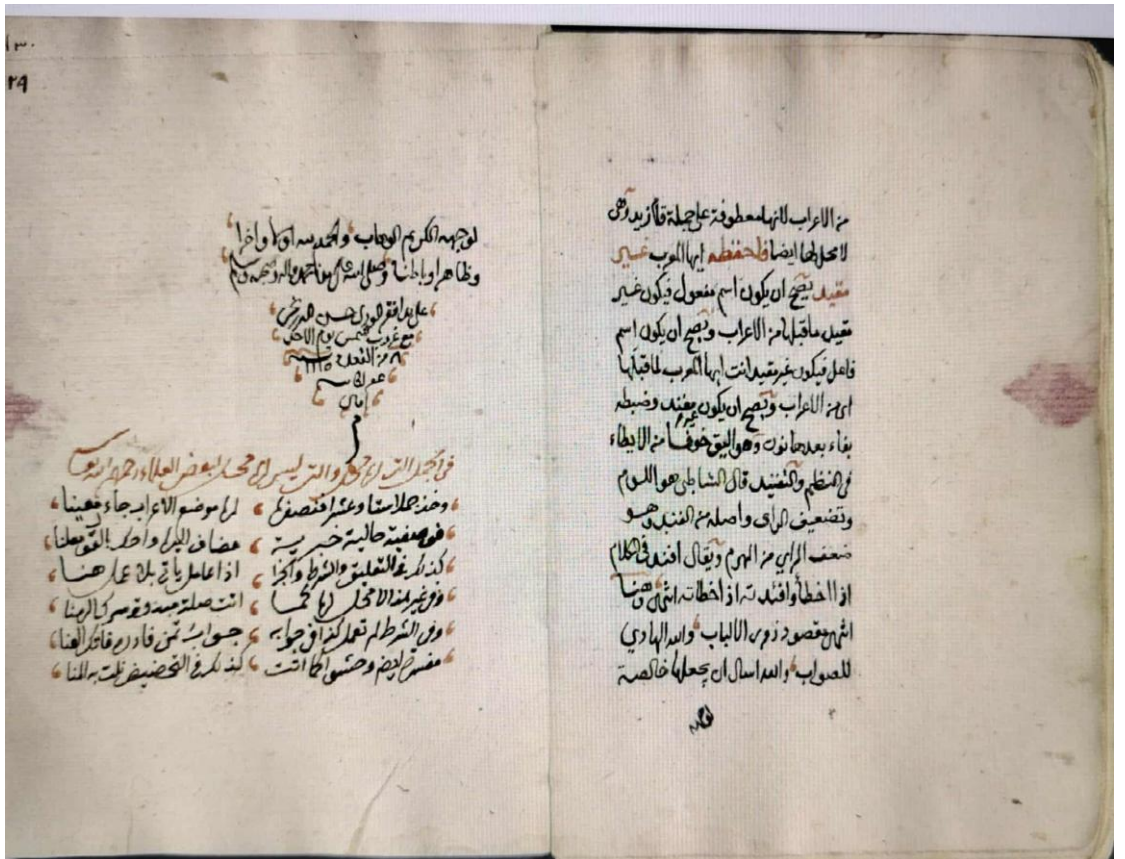 من الاعراب لانها معطوفة على جملة قام زيد وهي
لا محل لها ايضا فاحفظه ايها المعرب غير
مقيد يصح ان يكون اسم مفعول فيكون غير
مقيد ما قبلها من الاعراب ويصح ان يكون اسم
فاعل فيكون غير مقيد انت ايها المعرب لما قبلها
اى من الاعراب ويصح ان يكون غير مفند وضبطه
بفاء بعدها نون وهو اليق خوفا من الايطاء
فى النظم والتفنيد قال الشاطبى هو اللوم
وتضعيف الراى واصله من الفند وهو
ضعف الراي من الهرم ويقال افند فى الكلام
اذا اخطأ وافندته اذ اخطاته انتهى وهنا
انتهى مقصود ذوى الالباب والله الهادي
للصواب والله اسال ان يجعلها خالصة
لوجهه
١٣٠
٢٩
لوجهه الكريم الوهاب والحمد لله اولا واخرا
وظاهرا وباطنا وصلى الله على سيدنا محمد واله وصحبه وسلم
على يد افقر الورى حسن
مع غروب شمس يوم الاحد
من القعدة سنة ١١١٥
فى الجمل التى لها محل والتى ليس لها محل لبعض العلماء رحمهم الله
وخذ جملا ستا وعشرا فنصفها لها موضع الاعراب جاء مبينا
فوصفية حالية خبرية مضاف اليها واحك بالقول معلنا
كذلك فى التعليق والشرط والجزا اذا عامل ياتى بلا عمل هنا
وفى غير هذا لا محل لها كما اتت صلة مبدوة سرك الهنا
وفى الشرط لم تعمل كذاك جوابه جواب يمين فادره فاتك العنا
مفسرة ايضا وحشوا كما اتت كذلك فى التحضيض نلت به المنا